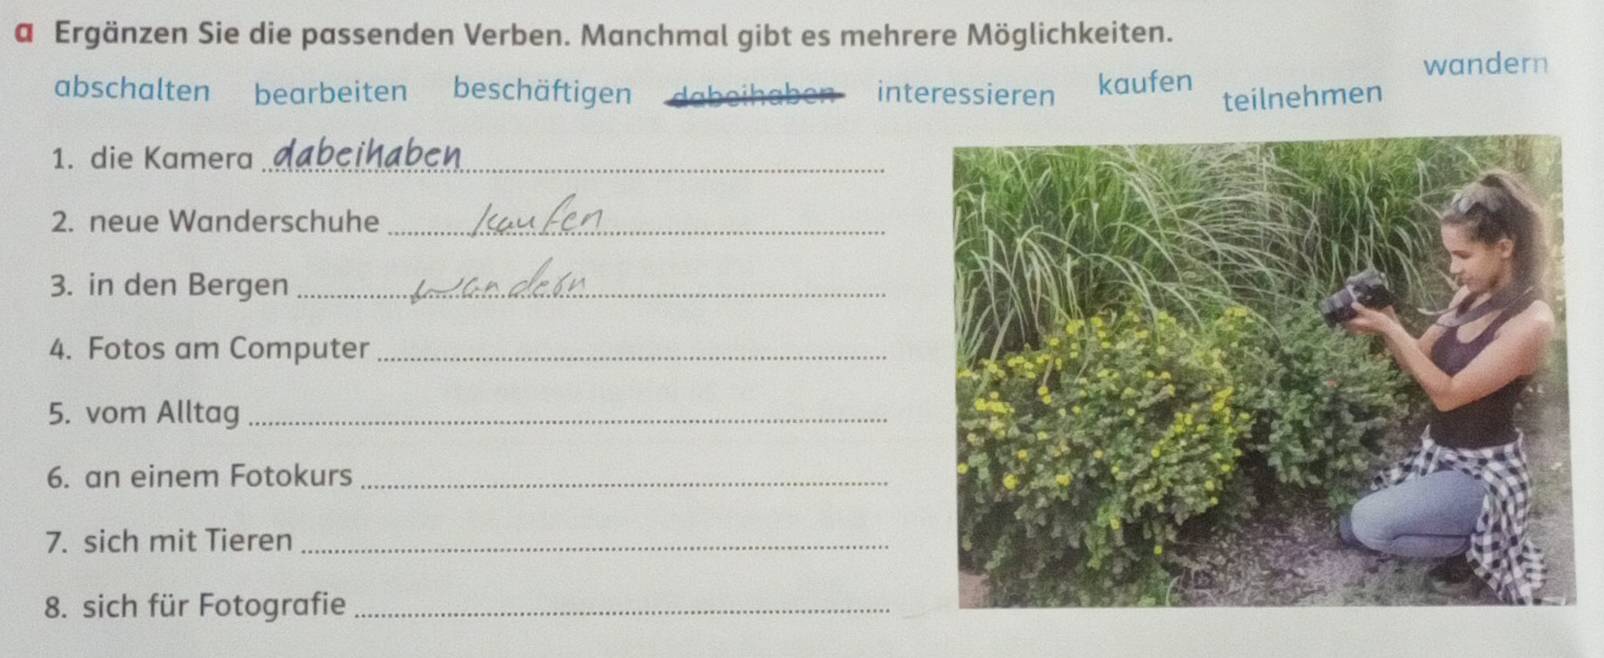 a Ergänzen Sie die passenden Verben. Manchmal gibt es mehrere Möglichkeiten.
abschalten bearbeiten beschäftigen dabeihaben interessieren kaufen teilnehmen wandern
1. die Kamera dabeihaben
2. neue Wanderschuhe kaufen
3. in den Bergen wandern
4. Fotos am Computer
5. vom Alltag
6. an einem Fotokurs
7. sich mit Tieren
8. sich für Fotografie